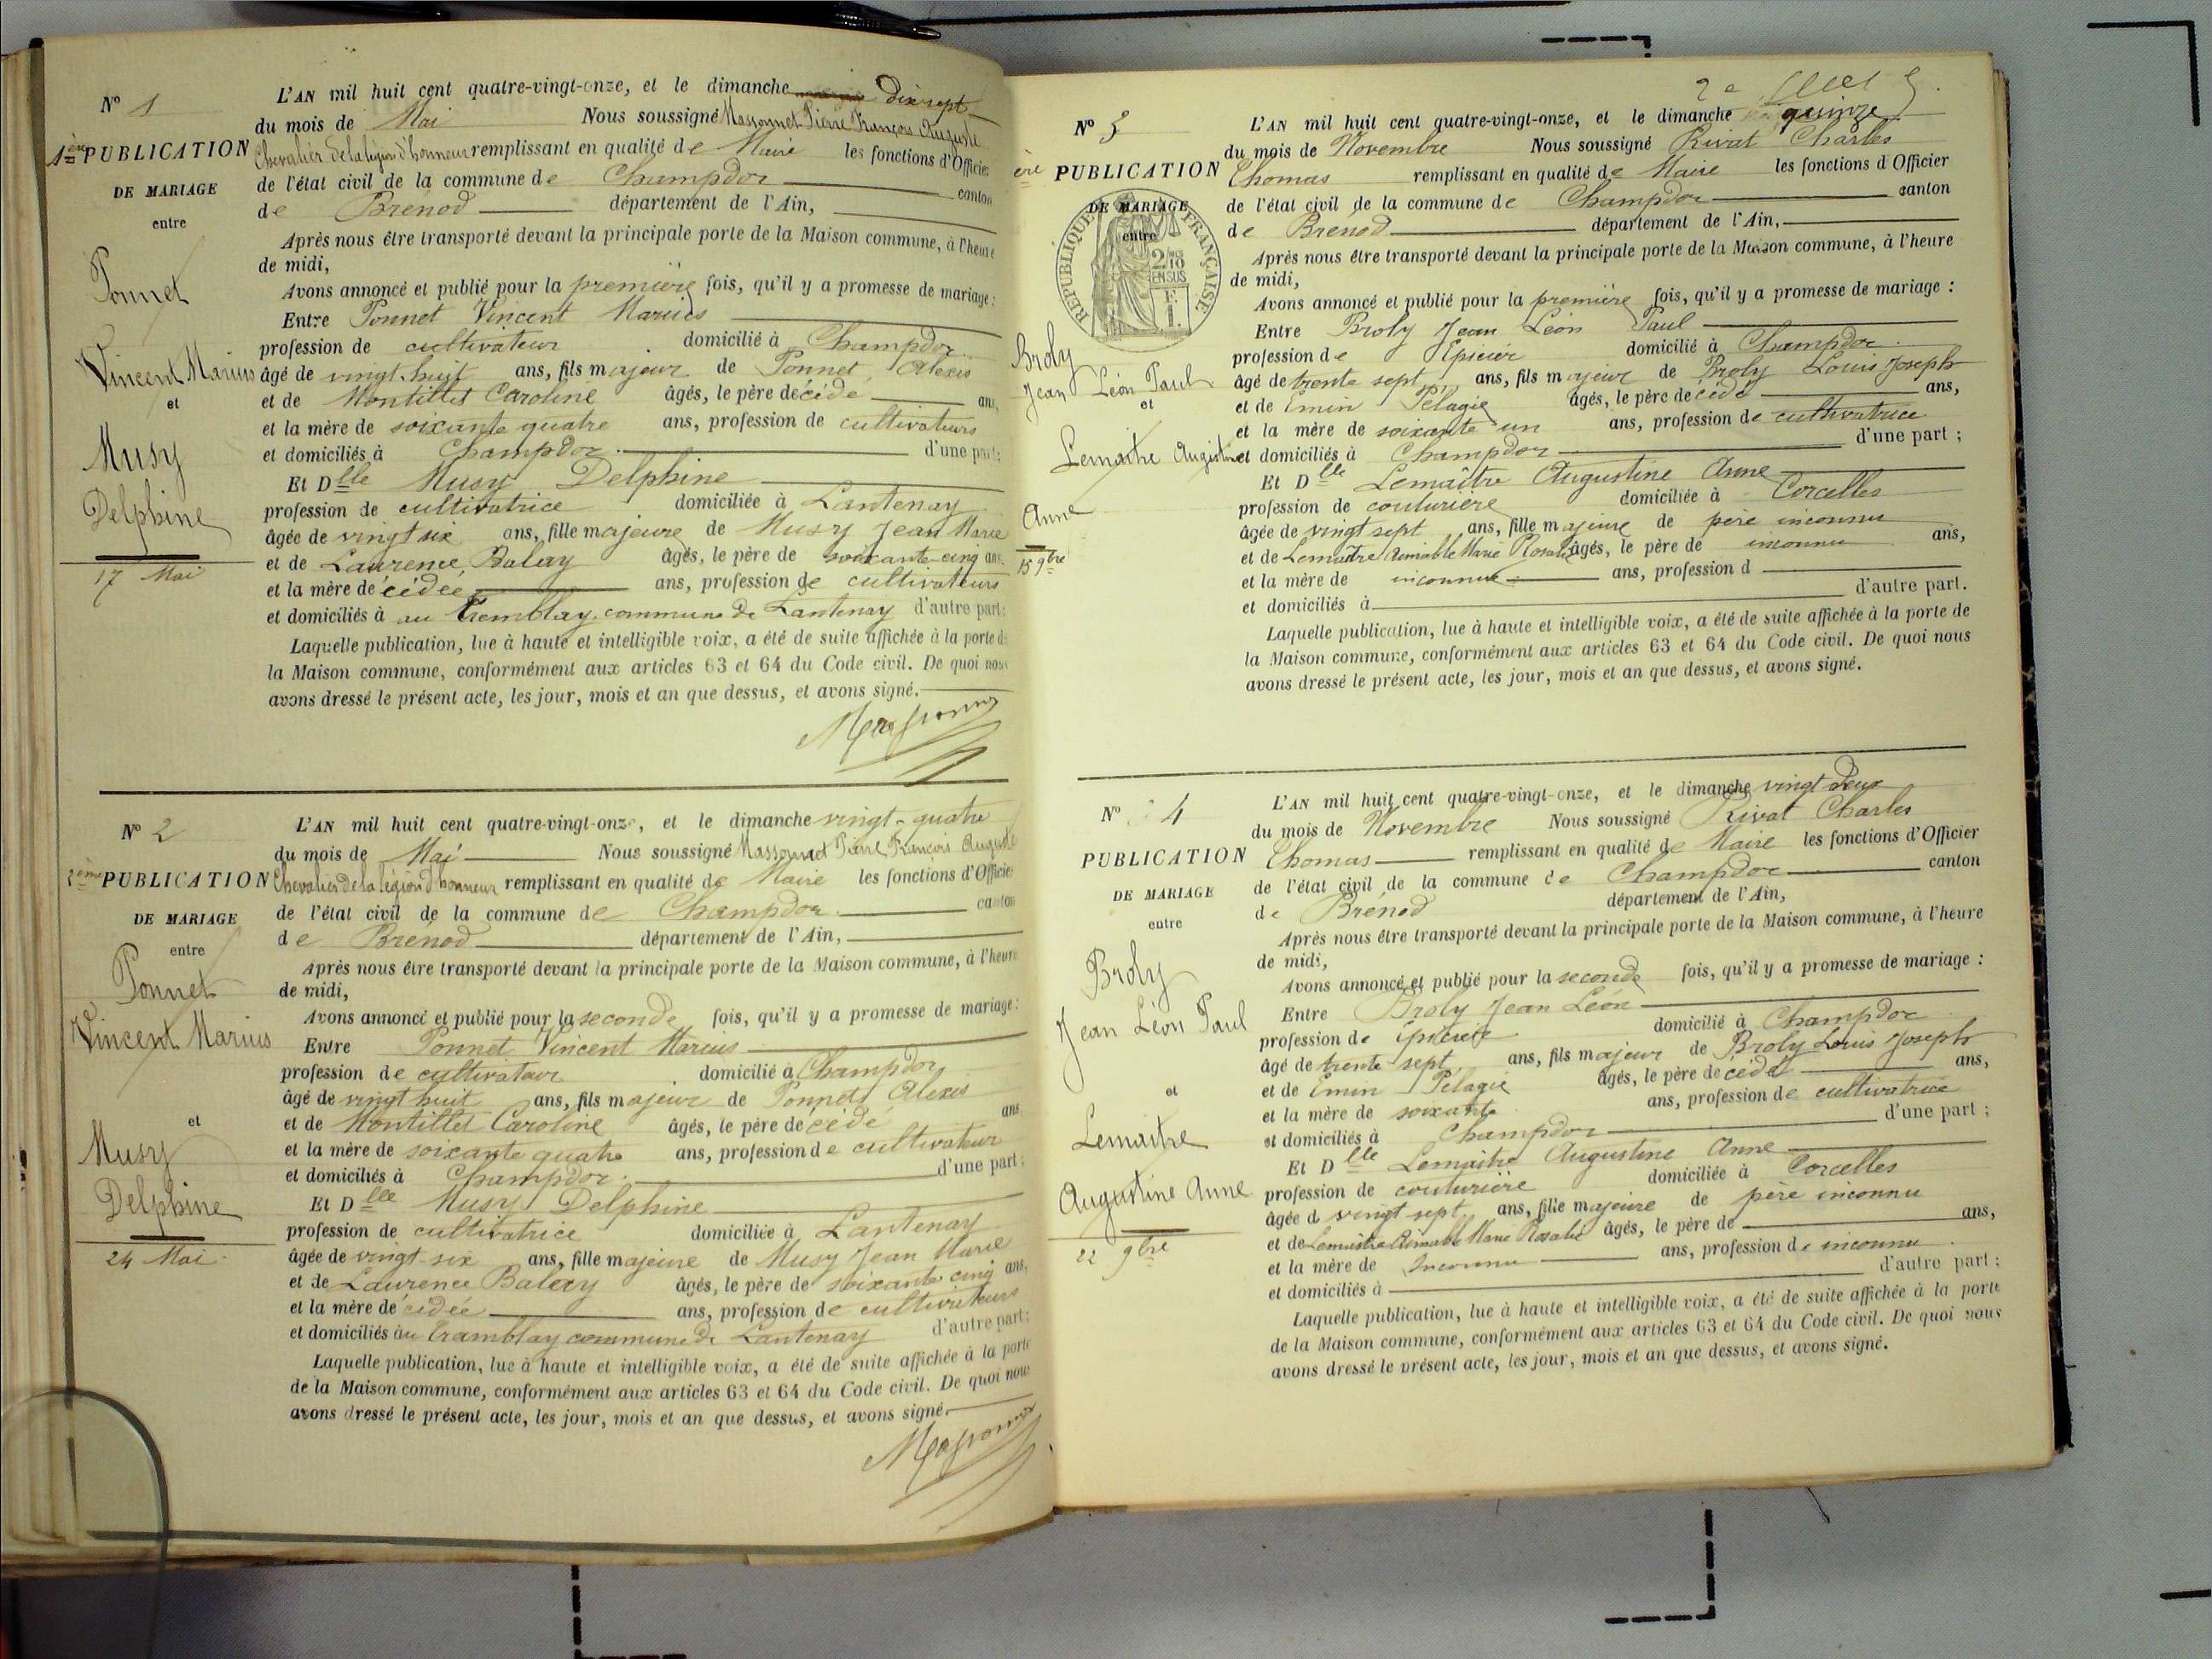 N° 1
1ère PUBLICATION
DE MARIAGE
entre
Ponnet
Vincent Marius
et
Musy
Delphine
17 Mai
L'AN mil huit cent quatre-vingt-onze, et le dimanche dix sept
du mois de Mai Nous soussigné Massonnet Pierre François Auguste
Chevalier de la légion d'honneur remplissant en qualité de Maire les fonctions d'Officier
de l'état civil de la commune de Champdor canton
de Brénod département de l'Ain,
Après nous être transporté devant la principale porte de la Maison commune, à l'heure
de midi,
Avons annoncé et publié pour la première fois, qu'il y a promesse de mariage :
Entre Ponnet Vincent Marius
profession de cultivateur domicilié à Champdor
âgé de vingt huit ans, fils majeur de Ponnet Alexis
et de Montillet Caroline âgés, le père décédé ans,
et la mère de soixante quatre ans, profession de cultivateurs
et domiciliés à Champdor d'une part;
Et Dlle Musy Delphine
profession de cultivatrice domiciliée à Lantenay
âgée de vingt six ans, fille majeure de Musy Jean Marie
et de Laurence Balay âgés, le père de soixante cinq ans,
et la mère décédée ans, profession de cultivateurs
et domiciliés à au Tremblay commune de Lantenay d'autre part;
Laquelle publication, lue à haute et intelligible voix, a été de suite affichée à la porte de
la Maison commune, conformément aux articles 63 et 64 du Code civil. De quoi nous
avons dressé le présent acte, les jour, mois et an que dessus, et avons signé.
Massonnet
N° 2
2ème PUBLICATION
DE MARIAGE
entre
Ponnet
Vincent Marius
et
Musy
Delphine
24 Mai
L'AN mil huit cent quatre-vingt-onze, et le dimanche vingt-quatre
du mois de Mai Nous soussigné Massonnet Pierre François Auguste
Chevalier de la légion d'honneur remplissant en qualité de Maire les fonctions d'Officier
de l'état civil de la commune de Champdor canton
de Brénod département de l'Ain,
Après nous être transporté devant la principale porte de la Maison commune, à l'heure
de midi,
Avons annoncé et publié pour la seconde fois, qu'il y a promesse de mariage :
Entre Ponnet Vincent Marius
profession de cultivateur domicilié à Champdor
âgé de vingt huit ans, fils majeur de Ponnet Alexis
et de Montillet Caroline âgés, le père décédé ans,
et la mère de soixante quatre ans, profession de cultivateur
et domiciliés à Champdor d'une part;
Et Dlle Musy Delphine
profession de cultivatrice domiciliée à Lantenay
âgée de vingt six ans, fille majeure de Musy Jean Marie
et de Laurence Balay âgés, le père de soixante cinq ans,
et la mère décédée ans, profession de cultivateurs
et domiciliés au Tramblay commune de Lantenay d'autre part;
Laquelle publication, lue à haute et intelligible voix, a été de suite affichée à la porte
de la Maison commune, conformément aux articles 63 et 64 du Code civil. De quoi nous
avons dressé le présent acte, les jour, mois et an que dessus, et avons signé.
Massonnet
N° 3
ère PUBLICATION
DE MARIAGE
entre
RÉPUBLIQUE FRANÇAISE
2/10 EN SUS
1 F.
Broly
Jean Léon Paul
et
Lemaître Augustine
Anne
15 9bre
2e
L'AN mil huit cent quatre-vingt-onze, et le dimanche quinze
du mois de Novembre Nous soussigné Rivat Charles
Thomas remplissant en qualité de Maire les fonctions d'Officier
de l'état civil de la commune de Champdor canton
de Brénod département de l'Ain,
Après nous être transporté devant la principale porte de la Maison commune, à l'heure
de midi,
Avons annoncé et publié pour la première fois, qu'il y a promesse de mariage :
Entre Broly Jean Léon Paul
profession de Epicier domicilié à Champdor
âgé de trente sept ans, fils majeur de Broly Louis Joseph
et de Emin Pélagie âgés, le père décédé ans,
et la mère de soixante un ans, profession de cultivatrice
et domiciliés à Champdor d'une part ;
Et Dlle Lemaître Augustine Anne
profession de couturière domiciliée à Corcelles
âgée de vingt sept ans, fille majeure de père inconnu
et de Lemaître Aimable Marie Rosalie âgés, le père de inconnu ans,
et la mère de inconnue ans, profession d
et domiciliés à d'autre part.
Laquelle publication, lue à haute et intelligible voix, a été de suite affichée à la porte de
la Maison commune, conformément aux articles 63 et 64 du Code civil. De quoi nous
avons dressé le présent acte, les jour, mois et an que dessus, et avons signé.
N° 4
PUBLICATION
DE MARIAGE
entre
Broly
Jean Léon Paul
et
Lemaitre
Augustine Anne
22 9bre
L'AN mil huit cent quatre-vingt-onze, et le dimanche vingt deux
du mois de Novembre Nous soussigné Rivat Charles
Thomas remplissant en qualité de Maire les fonctions d'Officier
de l'état civil de la commune de Champdor canton
de Brénod département de l'Ain,
Après nous être transporté devant la principale porte de la Maison commune, à l'heure
de midi,
Avons annoncé et publié pour la seconde fois, qu'il y a promesse de mariage :
Entre Broly Jean Léon
profession de épicier domicilié à Champdor
âgé de trente sept ans, fils majeur de Broly Louis Joseph
et de Emin Pélagie âgés, le père décédé ans,
et la mère de soixante ans, profession de cultivatrice
et domiciliés à Champdor d'une part ;
Et Dlle Lemaître Augustine Anne
profession de couturière domiciliée à Corcelles
âgée d vingt sept ans, fille majeure de père inconnu
et de Lemaître Aimable Marie Rosalie âgés, le père de ans,
et la mère de Inconnu ans, profession de inconnu
et domiciliés à d'autre part ;
Laquelle publication, lue à haute et intelligible voix, a été de suite affichée à la porte
de la Maison commune, conformément aux articles 63 et 64 du Code civil. De quoi nous
avons dressé le présent acte, les jour, mois et an que dessus, et avons signé.